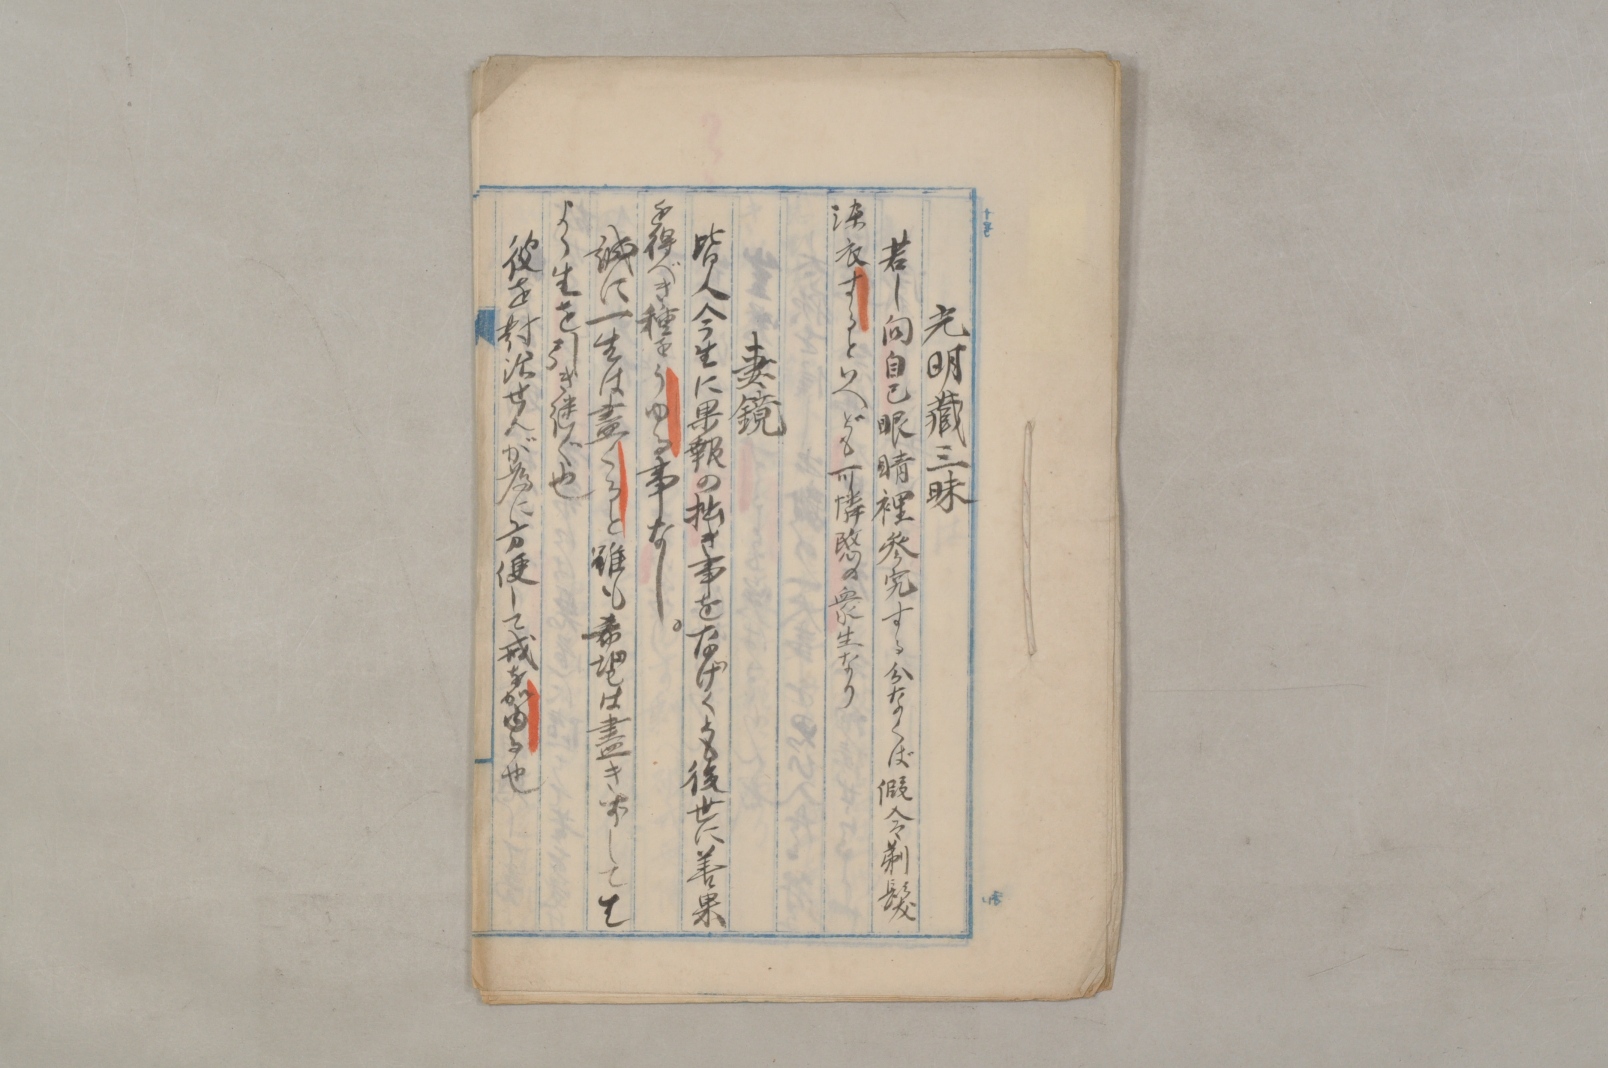 光明藏三昧
若し向自己眼睛裡參究する分なくば假令剃髮
染衣すといへども可憐愍の衆生なり
妻鏡
皆人今生に果報の拙き事をなげくとも後世に善果
を得べき種をうゆる事なし。
誠に一生は盡くると雖も希望は盡きずして生
より生を引き継ぐ也
彼を対治せんが為に方便して戒を加ゆる也